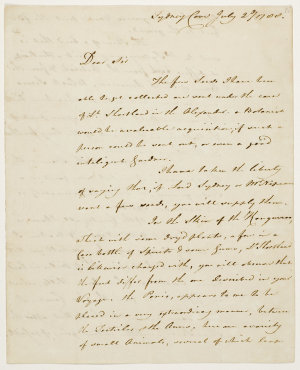 Sydney Cove July 2d 1788.
Dear Sir
The few Seeds I have been
able to get collected are sent under the care
of Lt Shortland in the Alexander. a Botanist
would be a valuable acquisition; if such a
person could be sent out, or even a good
inteligent Gardner.
I have taken the liberty
of saying that, if Lord Sydney or Mr Nepean
want a few seeds, you will supply them.
In the Skin of the Kangaroo
which with some dryd plants, a few in a
Case bottle of Spirits & some Gums, Lt Shortland
is likewise charged with, you will observe that
the foot differs from the one described in your
Voyage. the Penis, appears to me to be
placed in a very extraordinary manner, between
the Testicles, & the Anus, here are a variety
of small Animals, several of which have